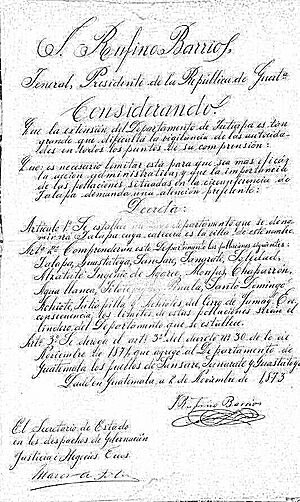 J. Rufino Barrios.
General, Presidente de la República de Guat.
Considerando.
Que la extensión del Departamento de Jutiapa es tan
grande que dificulta la vigilancia de las autorida-
des en todos los puntos de su comprensión:
Que es necesario limitar esta para que sea mas eficáz
la acción administrativa, y que la importancia
de las poblaciones situadas en la circunferencia de
Jalapa demanda una atención preferente:
Decreta:
Artículo 1º Se establece un nuevo departamento que se deno-
minará Jalapa cuya cabecera es la villa de este nombre.
Art. 2º Comprenderán este Departamento las poblaciones siguientes:
Jalapa, Guastatoya, Sansare, Sanarate, Soledad,
Alpatate Ingenio de Agarre, Monjas, Chaparrón,
Agua blanca, Pinula, Santo Domingo
consecuencia, los límites de estas poblaciones serán el
lindero del Departamento que se establece.
Arto. 3º Se deroga el art. 3º del decreto nº 30 de
Noviembre 1871 que agregó al Departamento de
Guatemala los pueblos de Sansare, Sanarate y Guastatoya
Dado en Guatemala, a 2 de Noviembre de 1873
J. Rufino Barrios
El Secretario de Estado
en los despachos de Gobernación
Justicia i Negocios Ecos.